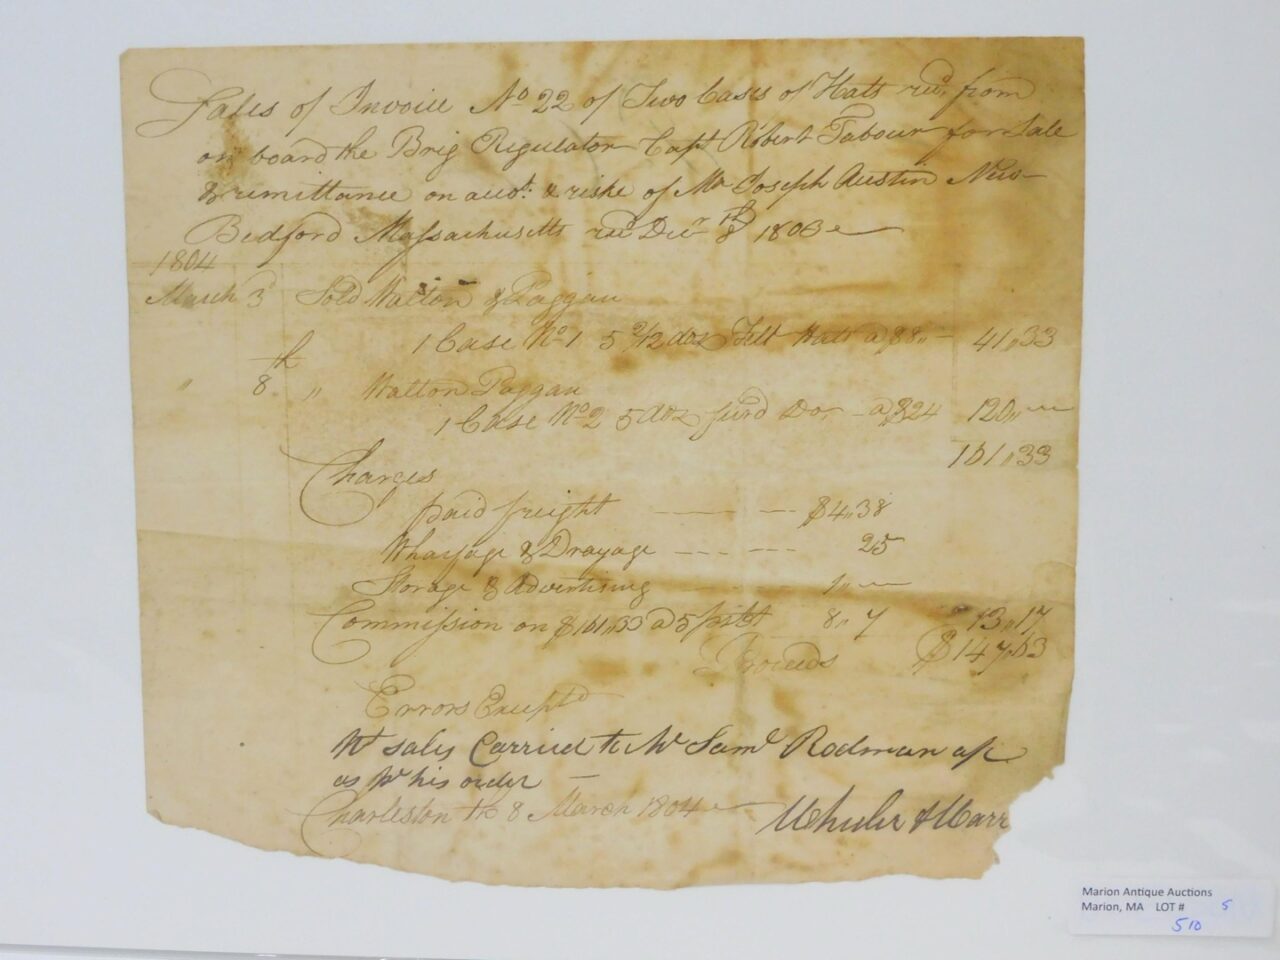 Sales of Invoice No 22 of Two Cases of Hats recd. from
on board the Brig Regulator Capt Robert Tabour for Sale
& remittance on acco.t & riske of Mr Joseph Austin New-
Bedford Massachusetts Decr 8th 1803
1804
March 3d Sold Walton & Paggau
1 Case No 1 5 2/12 doz Felt Hats a $8,, - 41,,33
,, 8th ,, Walton Paggau
1 Case No 2 5 doz furd Do - a $24 120,,
161,,33
Charges
paid freight - - - $4,,38
Wharfage & Drayage - - - 25
Storage & Advertising 1,,
Commission on $161,,33 a 5 8,,7 13,,17
Proceeds $147,63
Errors Except.d
Nt sales Carried to Mr Saml Rodman a/c
as pr his order -
Charleston the 8 March 1804 Wheeler & Carr
Marion Antique Auctions
Marion, MA LOT # 5
510